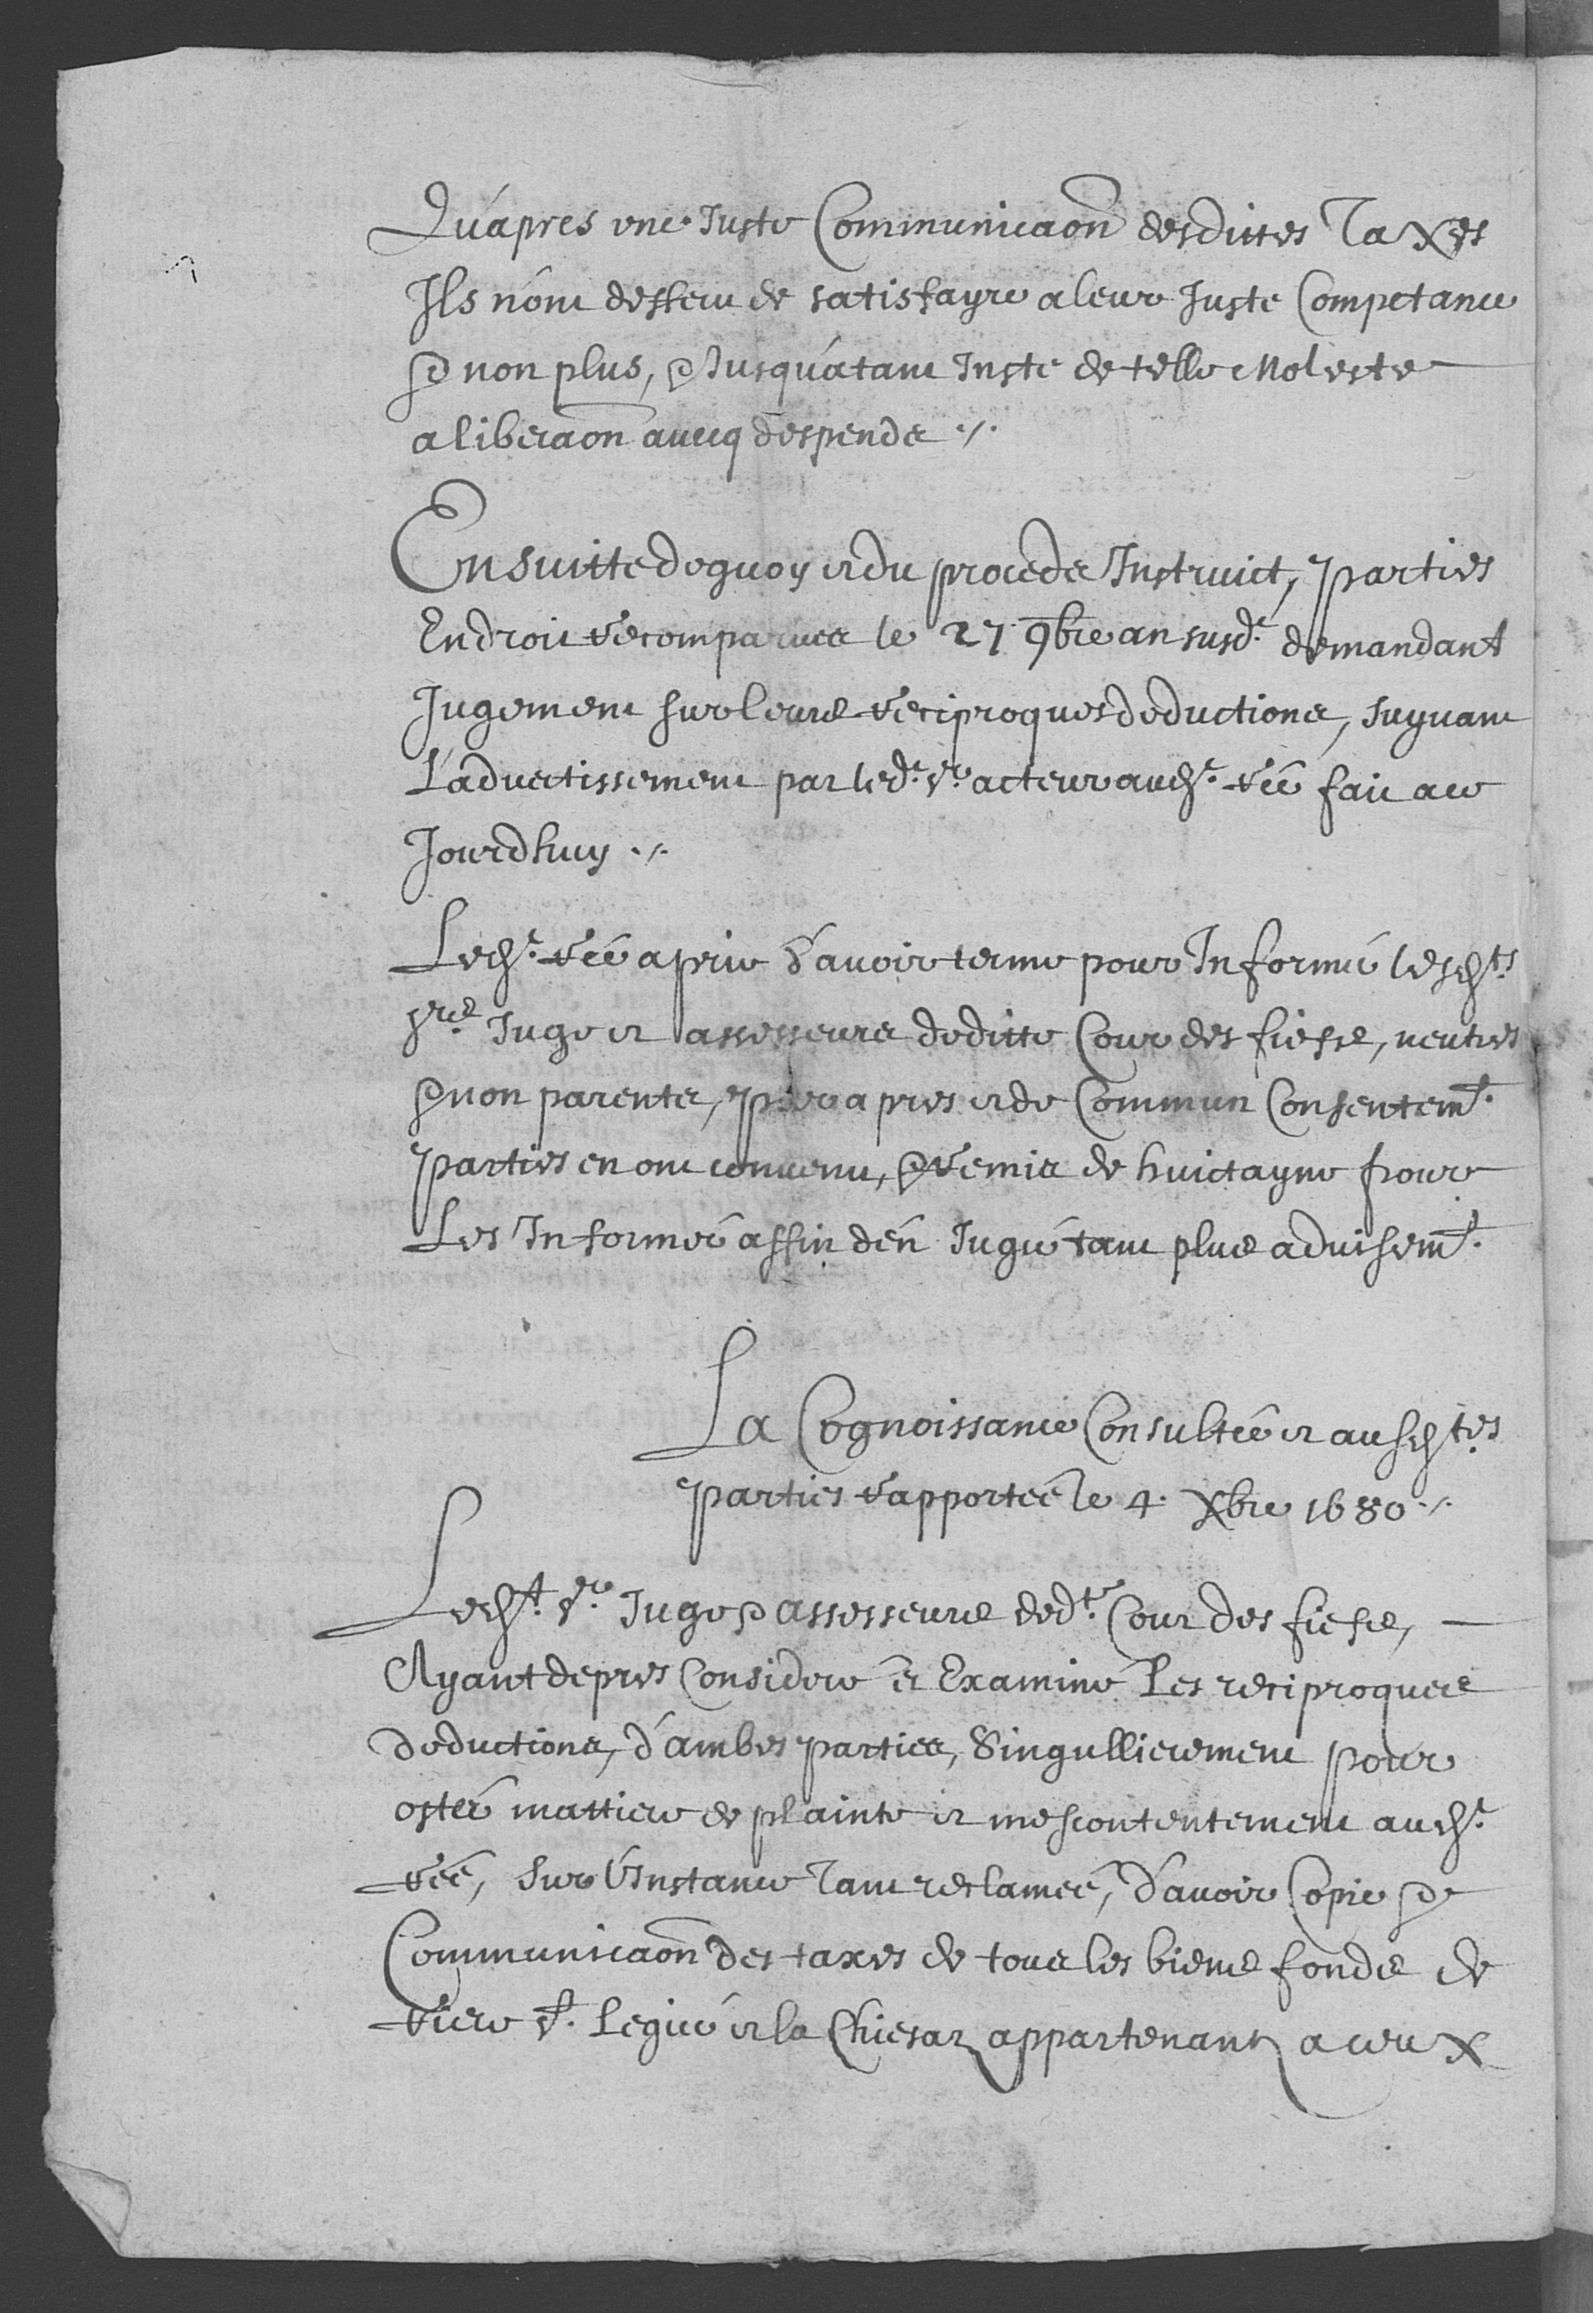 Qu'apres une Juste Communicaon desdittes Taxes
Ils n'ont de satisfayre a leur Juste Competance
& non plus, & Jusqu'a tant Inste de telle Moleste
a liberaon avecq despends ./.
Ensuitte dequoy et du procedé Instruict, parties
En droit recomparues le 27 9bre an susd.e demandant
Jugement sur leurs reciproques deductions, suyvant
L'advertissement par led.t Sr. acteur aud.t réé fait a ce
Jourdhuy ./.
Led.t réé a prié d'avoir terme pour Informé lesd.ts
Srs Juge et assesseurs deditte Cour des fiefs, neutres
& non parents, par apres et de Commun Consentem.t
parties en ont convenu, & remis de huictayne pour
Les Informér affin d'en Jugér tant plus advisem.t
La Cognoissance Consultée et ausd.tes
parties rapportée le 4. Xbre 1680 ./.
Led.t Sr. Juge & assesseurs ded.te Cour des fiefs,
Ayant de pres Consideré et Examiné Les reciproques
deductions, d'ambes parties, Singullierement pour
ostér mattiere de plainte et mescontentement aud.t
réé, sur l'Instance Tant reclamée, d'avoir Copie &
Communicaon des taxes de tous les biens fonds de
riere St. Legiér et la Chiesaz appartenants a ceux